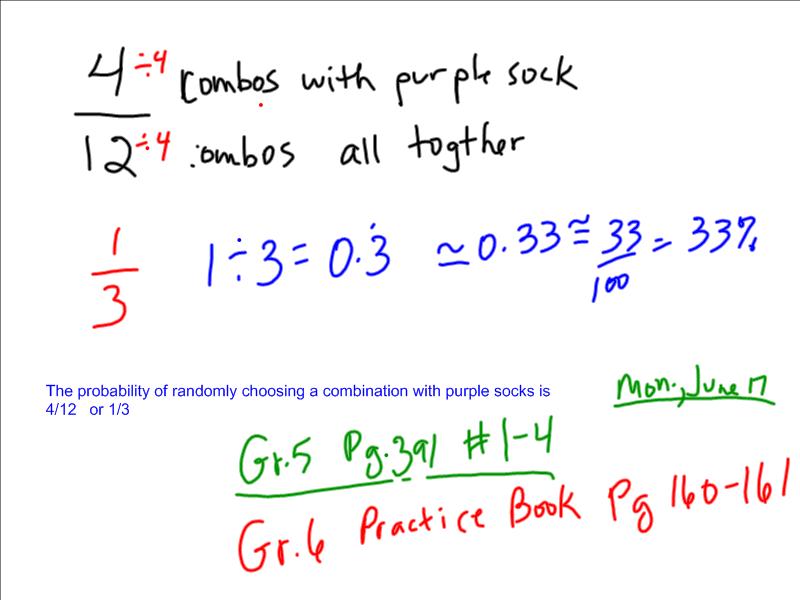 4 ÷4 combos with purple sock
12 ÷4 combos all togther
1/3 1 ÷ 3 = 0.3̇ ≃ 0.33 ≅ 33/100 = 33%
The probability of randomly choosing a combination with purple socks is
4/12 or 1/3
Mon., June 17
Gr.5 Pg.391 #1-4
Gr.6 Practice Book Pg 160-161